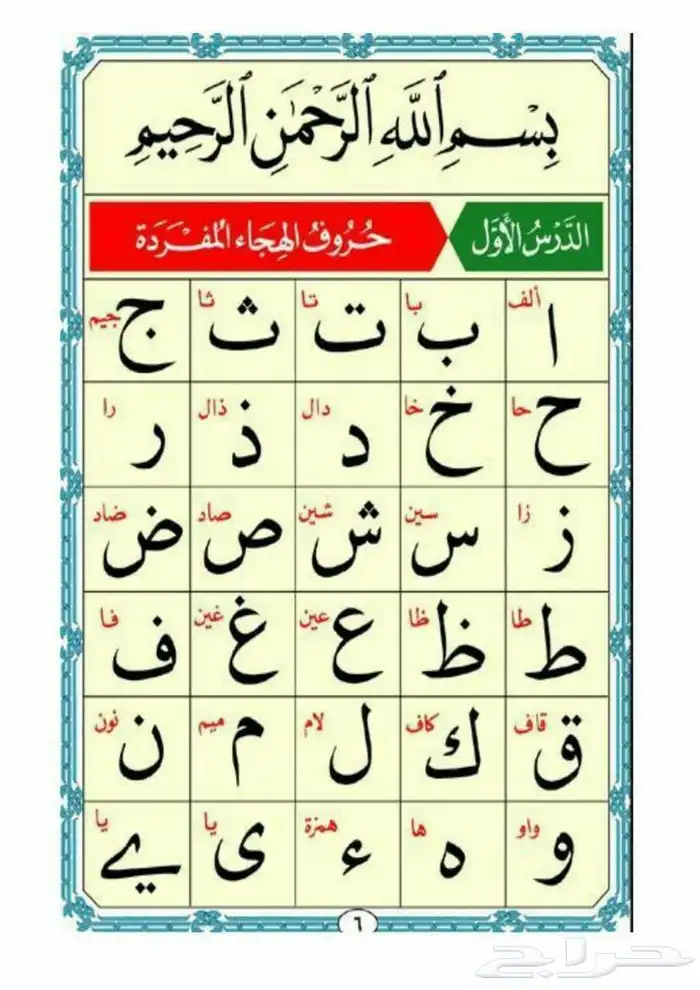 بِسْمِ ٱللَّهِ ٱلرَّحْمَٰنِ ٱلرَّحِيمِ
الدَّرْسُ الْأَوَّل حُرُوفُ الهِجَاء المُفْرَدَة
ألف ا با ب تا ت ثا ث جيم ج
حا ح خا خ دال د ذال ذ را ر
زا ز سين س شين ش صاد ص ضاد ض
طا ط ظا ظ عين ع غين غ فا ف
قاف ق كاف ك لام ل ميم م نون ن
واو و ها ه همزة ء يا ى يا ے
٦
حراج